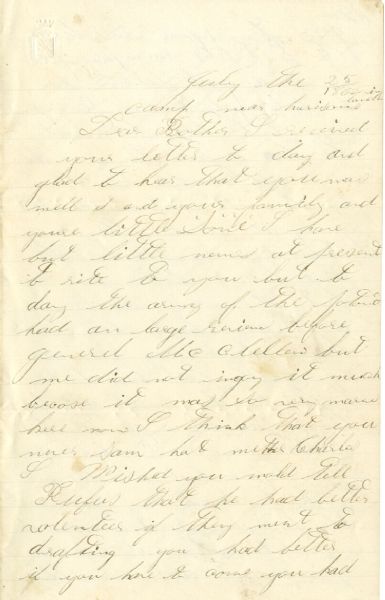 July the 25
1862
camp near harisons
landin
Dear Brother I receved
your letter to day and
glad to hear that you was
well and your family and
your little I have
but little news at present
to rite to you but to
day the army of the
had an large review before
general Mc Clellen but
me did not injoy it much
becose it was so very warm
here now I think that you
never saw hot Charles
I Wished you wold tell
Rufus that he had better
volenteer if they ment to
drafting you had better
if you have to come you had